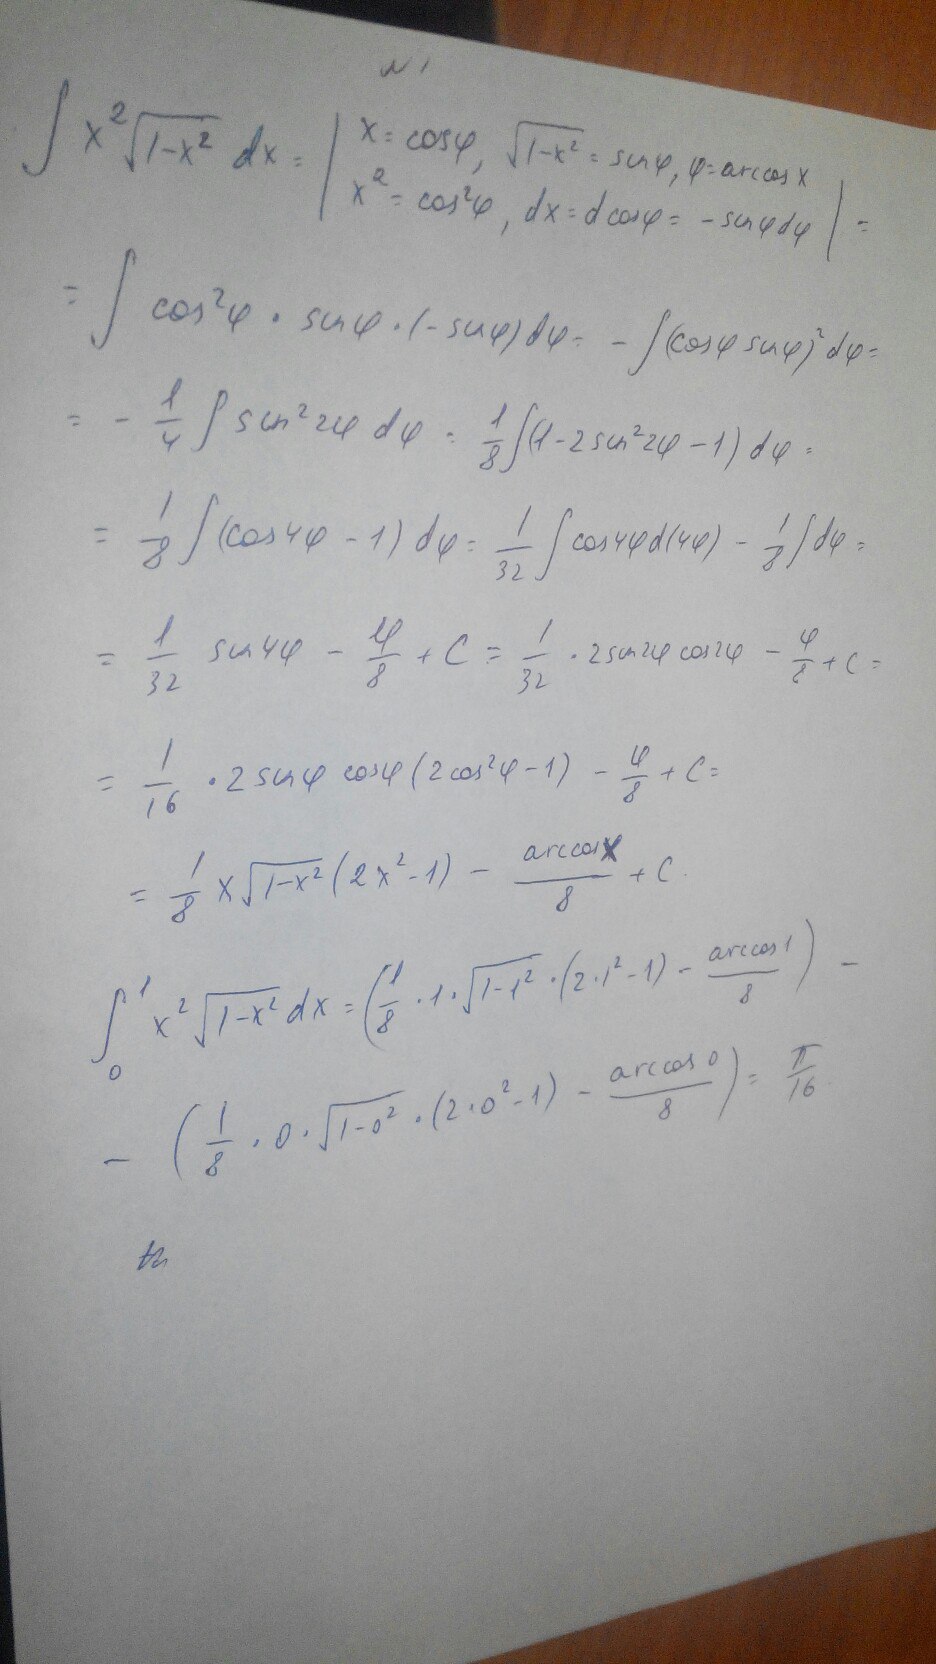 № 1
∫ x² √(1-x²) dx = | x = cosφ, √(1-x²) = sinφ, φ = arccos x
x² = cos²φ, dx = d cosφ = - sinφ dφ | =
= ∫ cos²φ · sinφ · (- sinφ) dφ = - ∫ (cosφ sinφ)² dφ =
= - 1/4 ∫ sin²2φ dφ = 1/8 ∫ (1 - 2 sin²2φ - 1) dφ =
= 1/8 ∫ (cos4φ - 1) dφ = 1/32 ∫ cos4φ d(4φ) - 1/8 ∫ dφ =
= 1/32 sin4φ - φ/8 + C = 1/32 · 2 sin2φ cos2φ - φ/8 + C =
= 1/16 · 2 sinφ cosφ (2cos²φ - 1) - φ/8 + C =
= 1/8 x √(1-x²) (2x² - 1) - arccos x/8 + C.
∫₀¹ x² √(1-x²) dx = (1/8 · 1 · √(1-1²) · (2·1² - 1) - arccos 1/8) -
- (1/8 · 0 · √(1-0²) · (2·0² - 1) - arccos 0/8) = π/16.